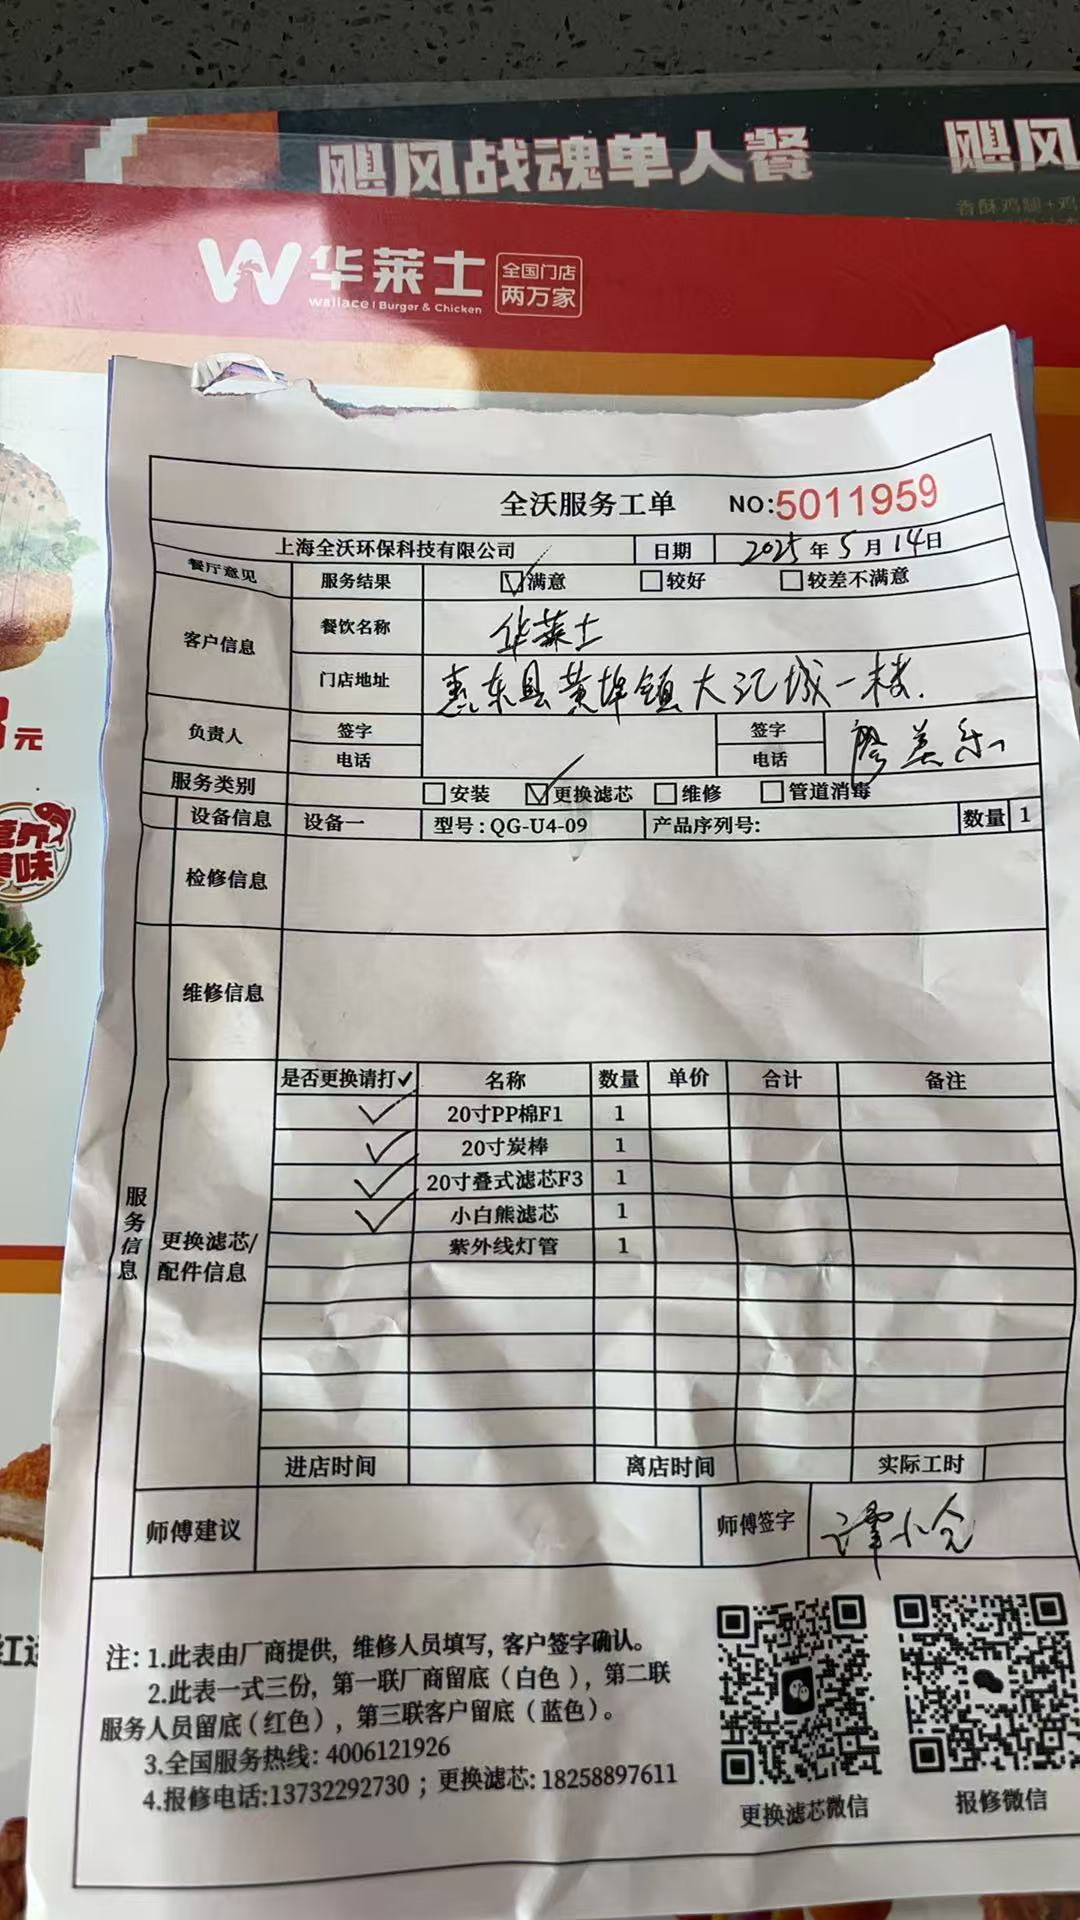 飓风战魂单人餐
飓风
香酥鸡腿+鸡
W 华莱士 全国门店
两万家
Wallace | Burger & Chicken
元
美味
全沃服务工单 NO:5011959
上海全沃环保科技有限公司 日期 2025年5月14日
餐厅意见 服务结果 ☑满意 □较好 □较差不满意
客户信息 餐饮名称 华莱士
门店地址 惠东县黄埠镇大记城一楼.
负责人 签字 签字
电话 电话
服务类别 □安装 ☑更换滤芯 □维修 □管道消毒
设备信息 设备一 型号:QG-U4-09 产品序列号: 数量 1
检修信息
维修信息
服务信息
更换滤芯/
配件信息
是否更换请打✓ 名称 数量 单价 合计 备注
✓ 20寸PP棉F1 1
✓ 20寸炭棒 1
✓ 20寸叠式滤芯F3 1
✓ 小白熊滤芯 1
紫外线灯管 1
进店时间 离店时间 实际工时
师傅建议 师傅签字 谭小仓
注: 1.此表由厂商提供, 维修人员填写, 客户签字确认。
2.此表一式三份, 第一联厂商留底（白色）, 第二联
服务人员留底（红色）, 第三联客户留底（蓝色）。
3.全国服务热线: 4006121926
4.报修电话:13732292730 ; 更换滤芯: 18258897611
更换滤芯微信 报修微信